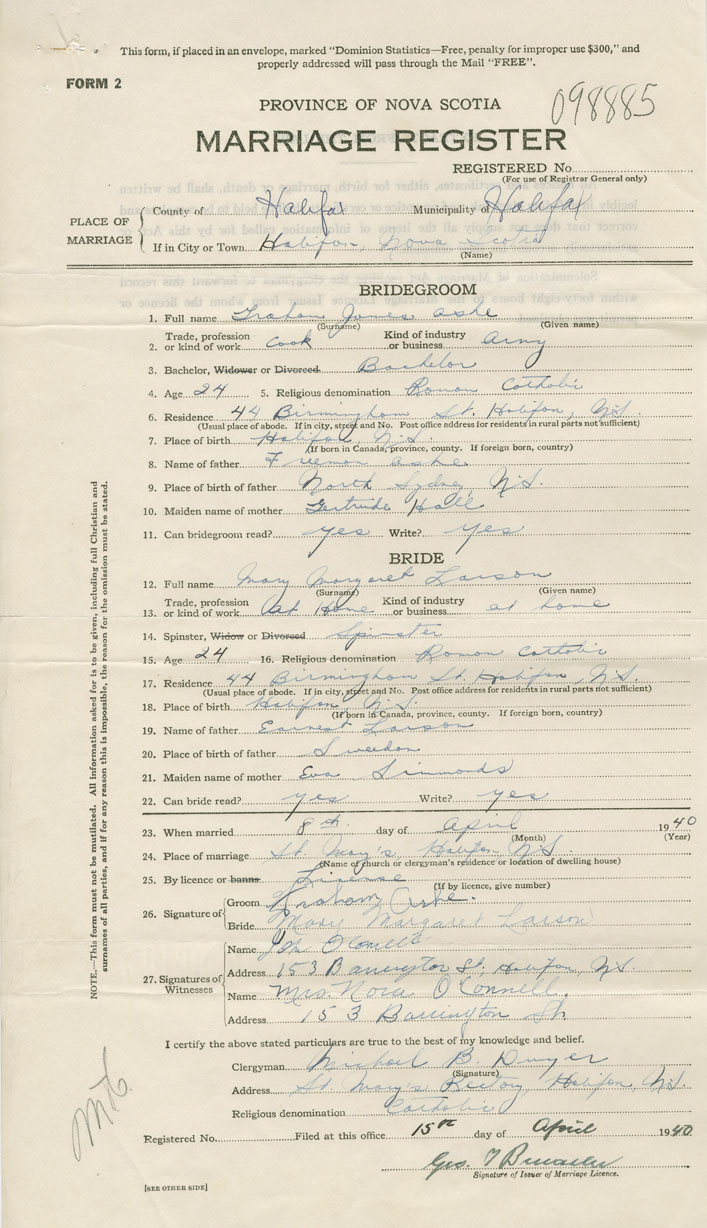 This form, if placed in an envelope, marked "Dominion Statistics—Free, penalty for improper use $300," and
properly addressed will pass through the Mail "FREE".
FORM 2
098885
PROVINCE OF NOVA SCOTIA
MARRIAGE REGISTER
REGISTERED No.
(For use of Registrar General only)
PLACE OF MARRIAGE
County of Halifax Municipality of Halifax
If in City or Town Halifax, Nova Scotia
(Name)
BRIDEGROOM
1. Full name Graham James Ashe
(Surname) (Given name)
2. Trade, profession or kind of work Cook Kind of industry or business Army
3. Bachelor, Widower or Divorced Bachelor
4. Age 24 5. Religious denomination Roman Catholic
6. Residence 44 Birmingham St. Halifax, N.S.
(Usual place of abode. If in city, street and No. Post office address for residents in rural parts not sufficient)
7. Place of birth Halifax, N.S.
(If born in Canada, province, county. If foreign born, country)
8. Name of father Ashe
9. Place of birth of father North Sydney, N.S.
10. Maiden name of mother Gertrude Hall
11. Can bridegroom read? yes Write? yes
BRIDE
12. Full name Mary Margaret Larson
(Surname) (Given name)
13. Trade, profession or kind of work At Home Kind of industry or business at home
14. Spinster, Widow or Divorced Spinster
15. Age 24 16. Religious denomination Roman Catholic
17. Residence 44 Birmingham St. Halifax, N.S.
(Usual place of abode. If in city, street and No. Post office address for residents in rural parts not sufficient)
18. Place of birth Halifax, N.S.
(If born in Canada, province, county. If foreign born, country)
19. Name of father Earnest Larson
20. Place of birth of father Sweedon
21. Maiden name of mother Eva Simmonds
22. Can bride read? yes Write? yes
23. When married 8th day of April 1940
(Month) (Year)
24. Place of marriage St. Mary's, Halifax, N.S.
(Name of church or clergyman's residence or location of dwelling house)
25. By licence or banns License
(If by licence, give number)
26. Signature of
Groom Graham Ashe.
Bride Mary Margaret Larson
27. Signatures of Witnesses
Name O'Connell
Address 153 Barrington St. Halifax, N.S.
Name Mrs. Nora O'Connell
Address 153 Barrington St.
I certify the above stated particulars are true to the best of my knowledge and belief.
Clergyman Michael B. Dwyer
(Signature)
Address St. Mary's Rectory, Halifax, N.S.
Religious denomination Catholic
Registered No. Filed at this office 15th day of April 1940
Geo.
Signature of Issuer of Marriage Licence.
[SEE OTHER SIDE]
NOTE.—This form must not be mutilated. All information asked for is to be given, including full Christian and
surnames of all parties, and if for any reason this is impossible, the reason for the omission must be stated.